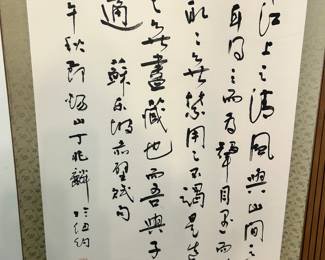 江上之清風與山間之
耳得之而為聲目遇而
取之無禁用之不竭是造
之無盡藏也而吾與子
適 蘇东坡赤壁賦句
午秋即墨山丁兆麟於纽约